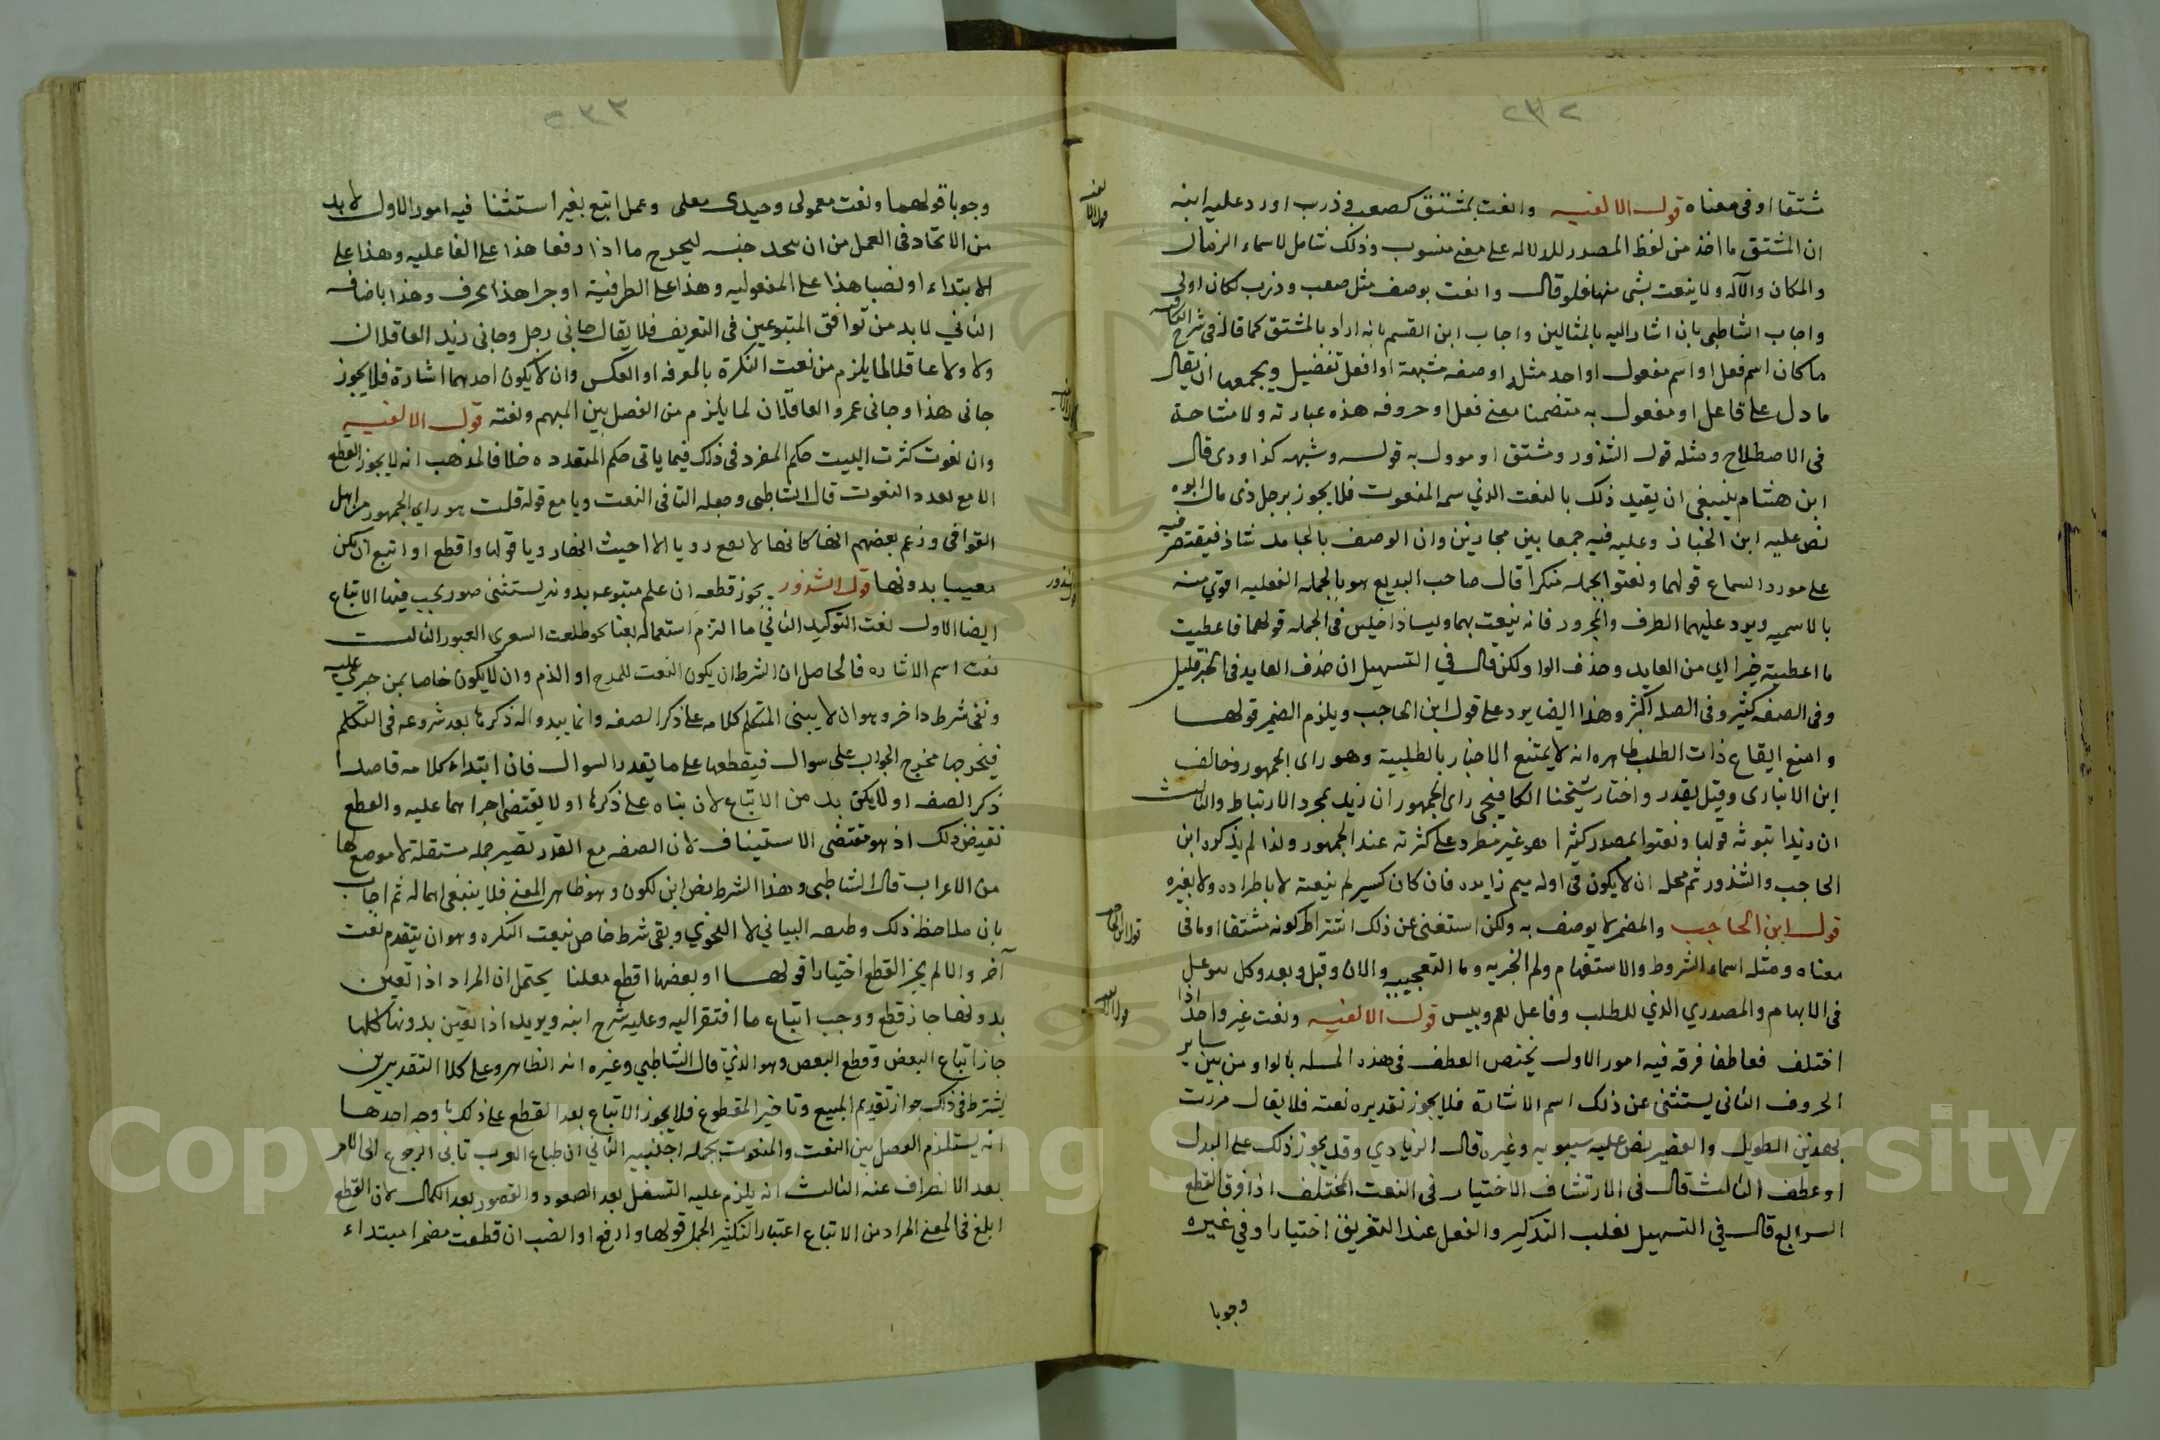 ٢٣٢
شتقا او فى معناه قول الالفيه وانعت بمشتق كصعب وذرب اورد عليه ابنه
ان المشتق ما اخذ من لفظ المصدر للدلاله على معنى منسوب وذلك شامل لاسماء الزمان
والمكان والآله ولا ينعت بشى منها فلو قال وانعت بوصف مثل صعب وذرب لكان اولى
واجاب الشاطبى بان اشار اليه بالمثالين واجاب ابن القسم بانه اراد بالمشتق كما قاله فى شرح الكافيه
ما كان اسم فعل او اسم مفعول او احد مثله او صفه مشبهة او افعل تفضيل ويجمعها ان يقال
ما دل على فاعل او مفعول به متضمنا معنى فعل او حروفه هذه عبارته ولا مشاحة
فى الاصطلاح ومثله قول الشذور ومشتق او موول به قوله وشبهه كذا وذى قال
ابن هشام ينبغى ان يقيد ذلك بالنعت الذي سمه المنعوت فلا يجوز برجل ذى مال ابوه
نص عليه ابن الخباز وعليه فيه جمعا بين مجازين وان الوصف بالجامد شاذ فيقتصر فيه
على مورد السماع قولهما ونعتوا بجمله منكرا قال صاحب البديع هو بالجمله الفعليه اقوي منه
بالاسميه ويرد عليهما الظرف والمجرور فانه ينعت بهما وليسا داخلين فى الجمله قولهما فاعطيت
ما اعطيته خبرا اي من العايد وحذف الواو لكن قال في التسهيل ان حذف العايد فى الخبر قليل
وفى الصفه كثير وفى الصله اكثر وهذا ايضا يرد على قول ابن الحاجب ويلزم الضمير قولهما
وامنع ايقاع ذات الطلب ظاهره انه لا يمتنع الاخبار بالطلبية وهو راى الجمهور وخالف
ابن الانبارى وقيل يقدر واختار شيخنا الكافيجى راى الجمهور ان زيد بمجرد الارتباط والثالث
ان زيدا ثبوته قولها ونعتوا بمصدر كثيرا هو غير مطرد على كثرته عند الجمهور ولذا لم يذكره ابن
الحاجب والشذور ثم محله ان لا يكون فى اوله ميم زايده فان كان كسير لم ينعت لا باطراده ولا بغيره
قول ابن الحاجب والمضمر لا يوصف به ولكن استغنى عن ذلك اشتراط كونه مشتقا او ما فى
معناه ومثله اسماء الشروط والاستفهام ولم الخبريه وما التعجبيه والان وقبل وبعد وكل موغل
فى الابهام والمصدري الذي للطلب وفاعل نعم وبيس قول الالفيه ونعت غير واحد اذا
اختلف فعاطفا فرقه فيه امور الاول يختص العطف فى هذه المسله بالواو من بين ساير
الحروف الثانى يستثنى عن ذلك اسم الاشارة فلا يجوز تقديره نعته فلا يقال مررت
بهذين الطويل والقصير نص عليه سيبويه وغيره قال الزيادي وقد يجوز ذلك على البدل
او عطف الثالث قال فى الارتشاف الاختيار فى النعت المختلف اذا فرق القطع
الرابع قال في التسهيل يغلب التذكير والعقل عند التفريق اختيارا وفي غيره
وجوبا
٢٣٣
وجوبا قولهما ونعت معمولى وحيدى معنى وعمل اتبع بغير استثنا فيه امور الاول لا بد
من الاتحاد فى العمل من ان يتحد جنسه ليخرج ما اذا رفعا هذا على الفاعليه وهذا على
الابتداء او نصبا هذا على المفعوليه وهذا على الظرفية او جرا هذا بحرف وهذا باضافه
الثاني لا بد من توافق المتبوعين فى التعريف فلا يقال جانى رجل وجانى زيد العاقلان
ولا ولا عاقلا لما يلزم من نعت النكرة بالمعرفه او العكس وان لا يكون احدهما اشارة فلا يجوز
جانى هذا وجانى عمرو العاقلان لما يلزم من الفصل بين المبهم ونعته قول الالفيه
وان نعوت كثرت البيت حكم المفرد فى ذلك فيما ياتى حكم المتعدده خلافا لمذهب انه لا يجوز القطع
الا مع تعدد النعوت قال الشاطبى وجعله التا فى النعت ويا مع قوله قلت هو راى الجمهور من اهل
القوافى وزعم بعضهم انها كانها لا تقع رويا الا حيث الضار ويا قولها واقطع او اتبع ان يكن
معينا بدونها قول الشذور يجوز قطعه ان علم متبوعه بدونه يستثنى صور يجب فيها الاتباع
ايضا الاول نعت التوكيد الثاني ما التزم استعماله نعتا نحو طلعت الشعرى العبور الثالث
نعت اسم الاشاره فالحاصل ان الشرط ان يكون النعت للمدح او الذم وان لا يكون خاصا بمن جرى عليه
ونفى شرط داخر وهو ان لا يبنى المتكلم كلامه على ذكر الصفه وانما يبدو اله ذكرها بعد شروعه فى التكلم
فيخرجها مخرج الجواب على سوال فيقطعها على ما يقدر السوال فان ابتداء كلامه قاصدا
ذكر الصفه اولا لم يكن بد من الاتباع لان بناه على ذكرها اولا يقتضى اجراها عليه والقطع
نقيض ذلك اذ هو مقتضى الاستيناف لان الصفه مع القدر تصير جمله مستقلة لا موضع لها
من الاعراب قال الشاطبى وهذا الشرط نص ابن لكون وهو ظاهر المعنى فلا ينبغى اهماله ثم اجاب
بان ملاحظ ذلك وظيفه البيانى لا النحوى وبقى شرط خاص بنعت النكره وهو ان يتقدم نعت
آخر والا لم يجز القطع اختيارا قولهما او بعضها اقطع معلنا يحتمل ان المراد اذا تعين
بدونها جاز قطع ووجب اتباع ما افتقر اليه وعليه شرح ابنه ويريد اذا تعين بدونها كلها
جاز اتباع البعض وقطع البعض وهو الذى قال الشاطبي وغيره انه الظاهر وعلى كلا التقديرين
يشترط فى ذلك جواز تقديم المبيع وتاخير المقطوع فلا يجوز الاتباع بعد القطع على ذلك وجه احدها
انه يستلزم الفصل بين النعت والمنعوت بجمله اجنبيه الثاني ان طباع العرب تابى الرجوع الى الامر
بعد الانصراف عنه الثالث انه يلزم عليه التسفل بعد الصعود والقصور بعد الكمال لان القطع
ابلغ فى المعنى المراد من الاتباع اعتبار التكثير الجمل قولها وارفع او انصب ان قطعت مضمرا مبتداء
Copyright © King Saud University